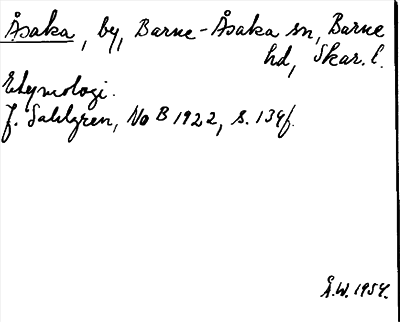 Åsaka, by, Barne-Åsaka sn, Barne
hd, Skar. l.
Etymologi.
J. Sahlgren, No B 1922, s. 139f.
Å.W. 1954.